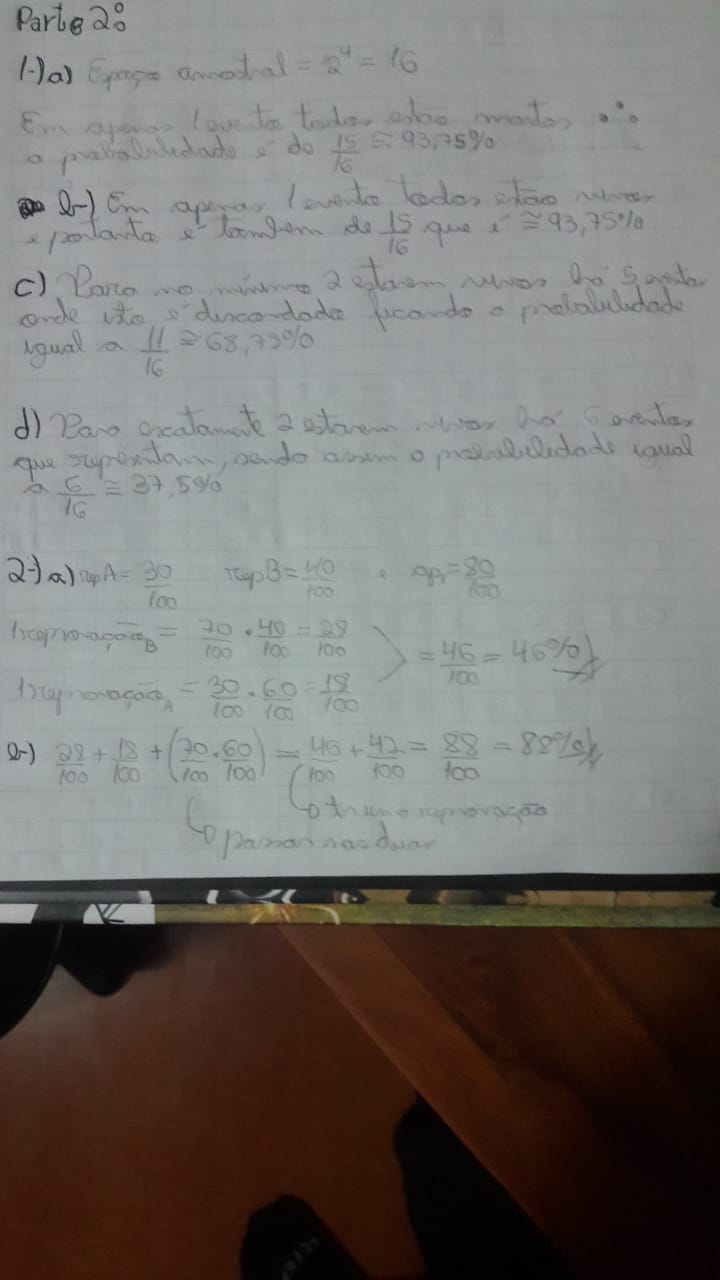 Parte 2:
1-)a) Espaço amostral = 2⁴ = 16
Em apenas 1 evento todos estão mortos ∴
a probabilidade é de 15/16 ≅ 93,75%
b-) Em apenas 1 evento todos estão vivos
e portanto é também de 15/16 que é ≅ 93,75%
c) Para no mínimo 2 estarem vivos há 5 eventos
onde isto é descordado ficando a probabilidade
igual a 11/16 ≅ 68,75%
d) Para exatamente 2 estarem vivos há 6 eventos
que representam, sendo assim a probabilidade igual
a 6/16 ≅ 37,5%
2-)a) rep A = 30/100 rep B = 40/100 = 80/100
1 reprovação B = 70/100 . 40/100 = 28/100
= 46/100 = 46%
1 reprovação A = 30/100 . 60/100 = 18/100
b-) 28/100 + 18/100 + (70/100 . 60/100) = 46/100 + 42/100 = 88/100 = 88%
↳ ter uma reprovação
↳ passar nas duas